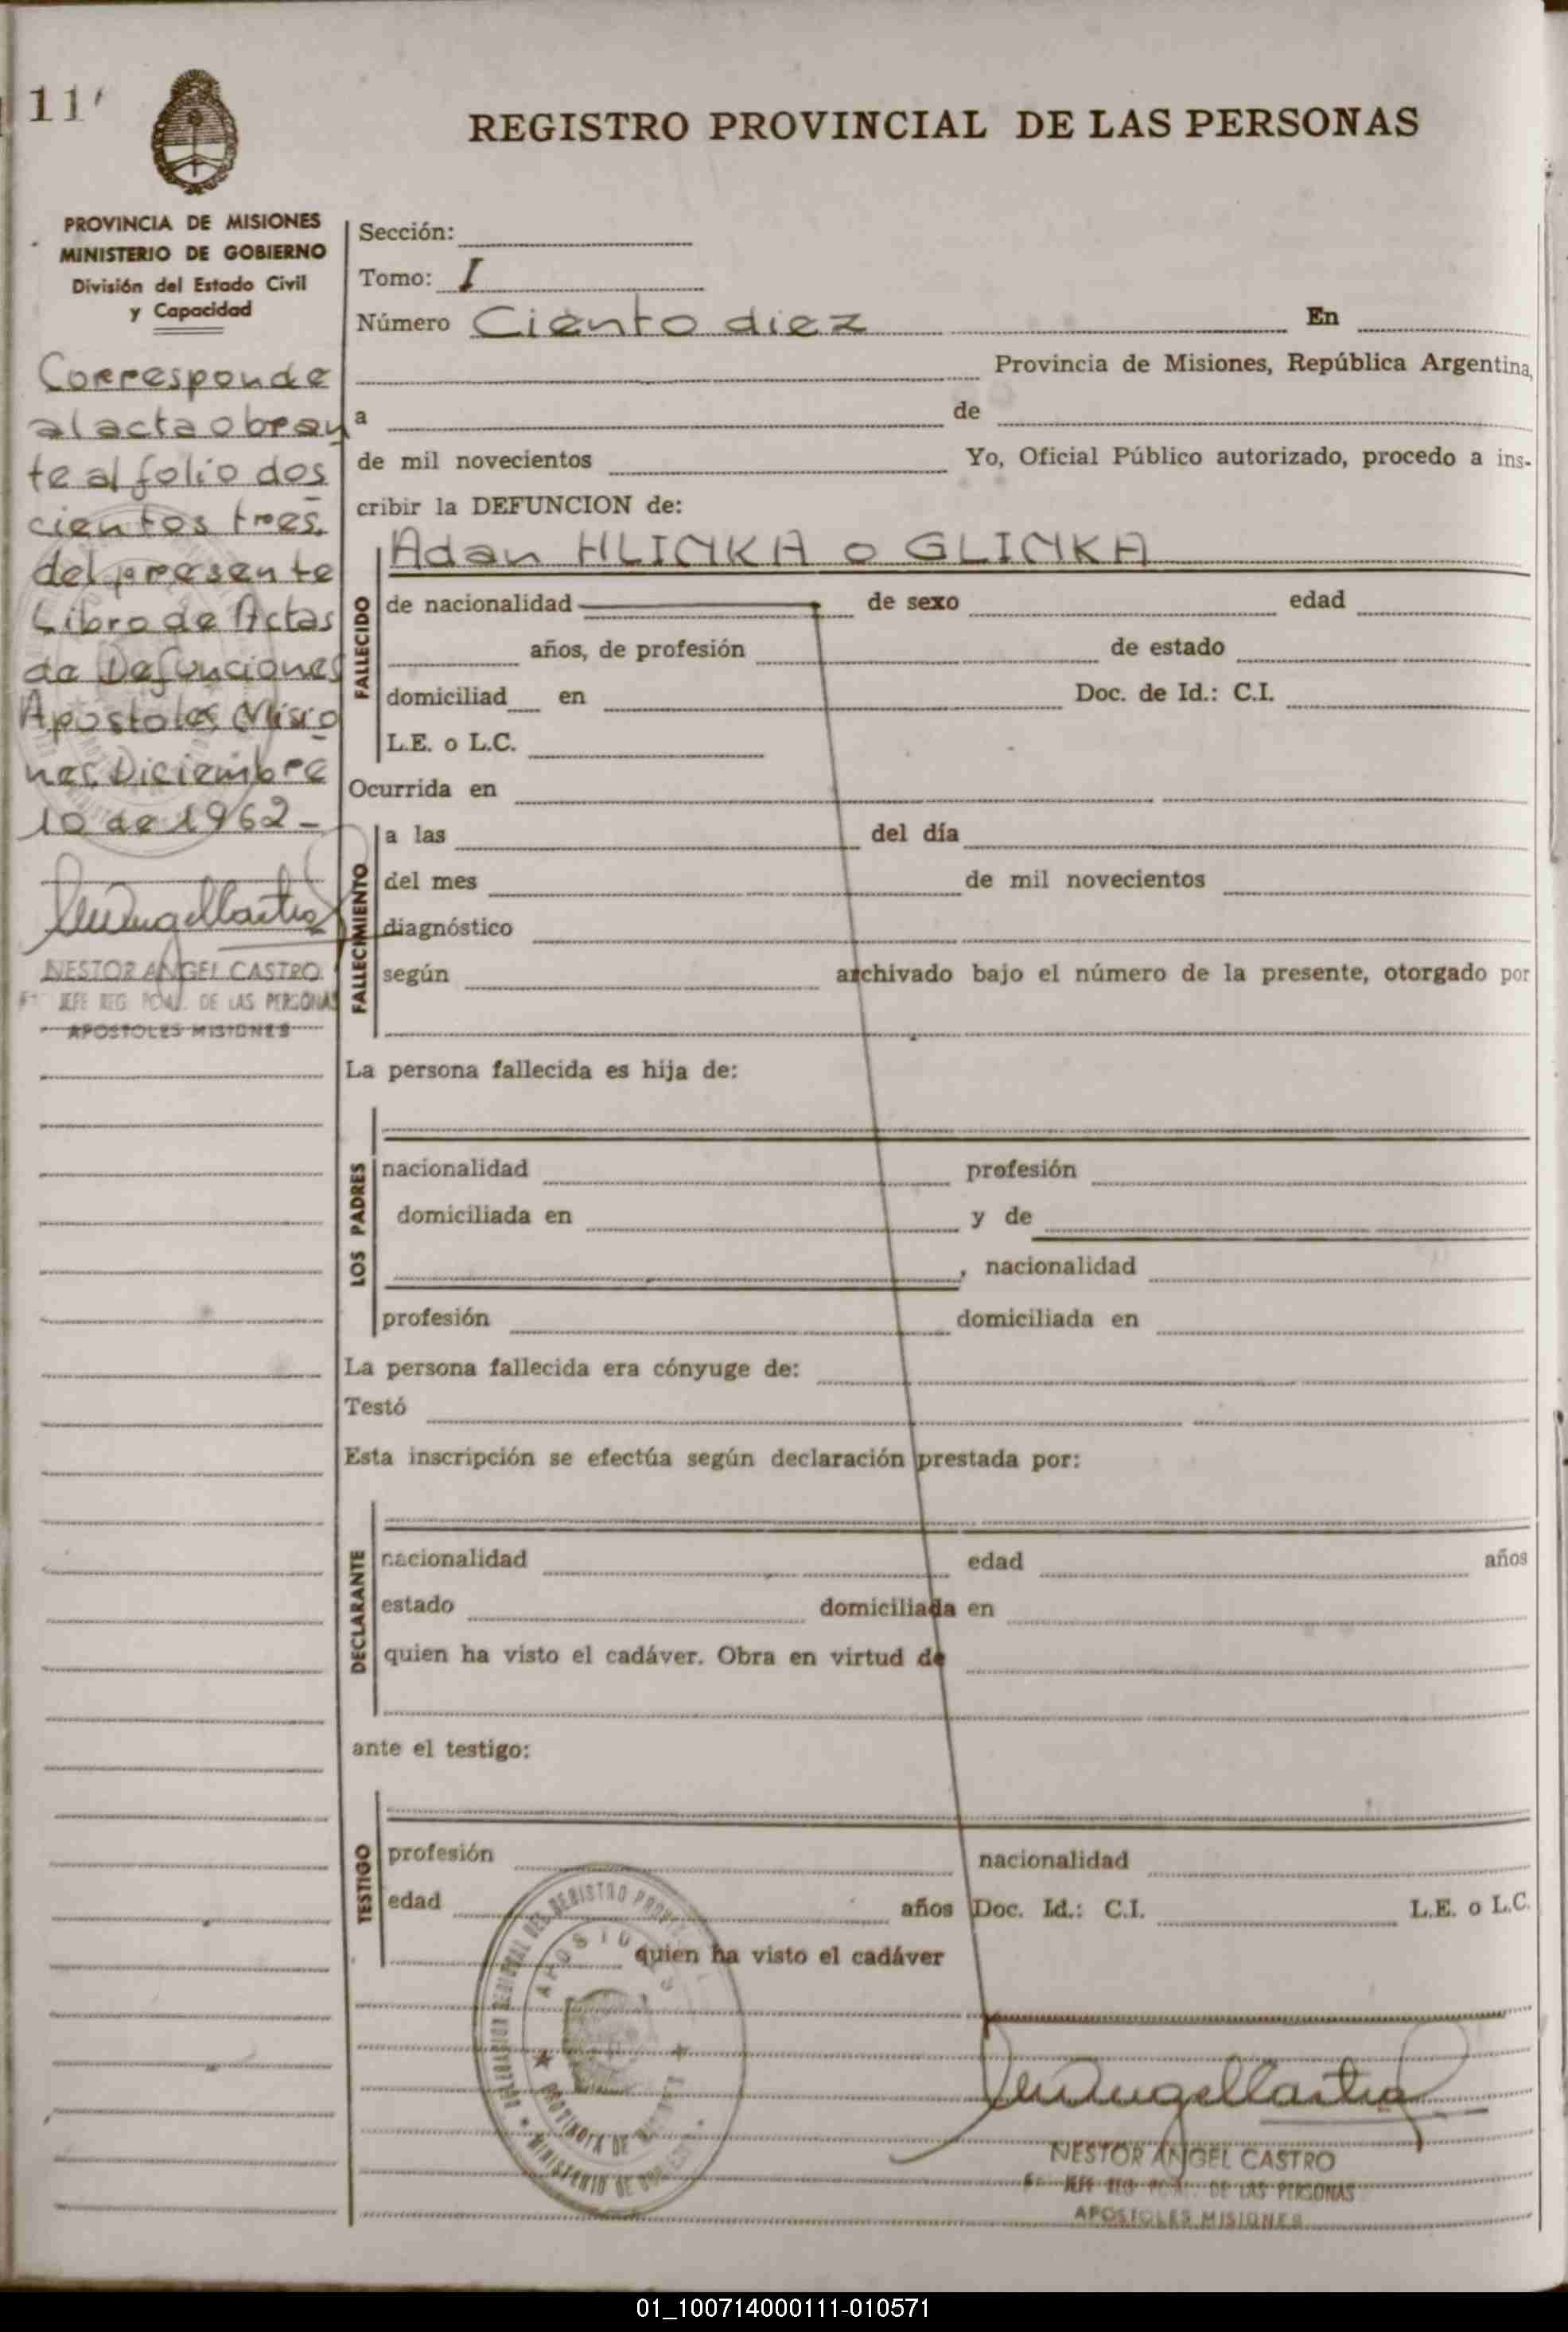 11
REGISTRO PROVINCIAL DE LAS PERSONAS
PROVINCIA DE MISIONES
MINISTERIO DE GOBIERNO
División del Estado Civil
y Capacidad
Corresponde
al acta obran
te al folio dos
cientos tres.
del presente
Libro de Actas
de Defunciones
Apostoles Misio
nes Diciembre
10 de 1962-
NESTOR ANGEL CASTRO
JEFE REG. PCIAL. DE LAS PERSONAS
APOSTOLES MISIONES
Sección:
Tomo: I
Número Ciento diez En
Provincia de Misiones, República Argentina,
a de
de mil novecientos Yo, Oficial Público autorizado, procedo a ins-
cribir la DEFUNCION de:
FALLECIDO
Adan HLINKA o GLINKA
de nacionalidad de sexo edad
años, de profesión de estado
domiciliad en Doc. de Id.: C.I.
L.E. o L.C.
Ocurrida en
FALLECIMIENTO
a las del día
del mes de mil novecientos
diagnóstico
según archivado bajo el número de la presente, otorgado por
La persona fallecida es hija de:
LOS PADRES
nacionalidad profesión
domiciliada en y de
, nacionalidad
profesión domiciliada en
La persona fallecida era cónyuge de:
Testó
Esta inscripción se efectúa según declaración prestada por:
DECLARANTE
nacionalidad edad años
estado domiciliada en
quien ha visto el cadáver. Obra en virtud de
ante el testigo:
TESTIGO
profesión nacionalidad
edad años Doc. Id.: C.I. L.E. o L.C.
quien ha visto el cadáver
NESTOR ANGEL CASTRO
JEFE REG. PCIAL. DE LAS PERSONAS
APOSTOLES MISIONES
01_100714000111-010571